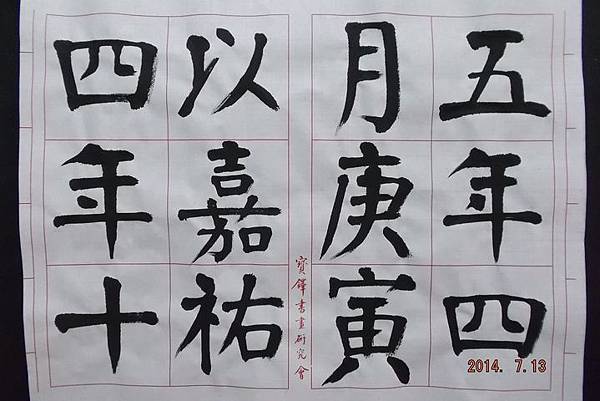 五年四
月庚寅
以嘉祐
四年十
寶鐸書畫研究會
2014. 7.13